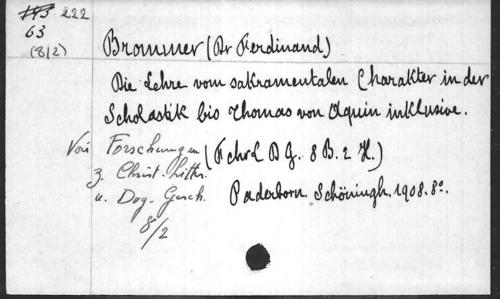 193. 222
63
(8/2)
Brommer (Dr Ferdinand)
Die Lehre vom sakramentalen Charakter in der
Scholastik bis Thomas von Aquin inklusive.
Voir Forschungen (F. chr L D G. 8 B. 2 H.)
z. Christ. Litter.
u. Dog. Gesch. Paderborn. Schöningh. 1908. 8º.
8/2